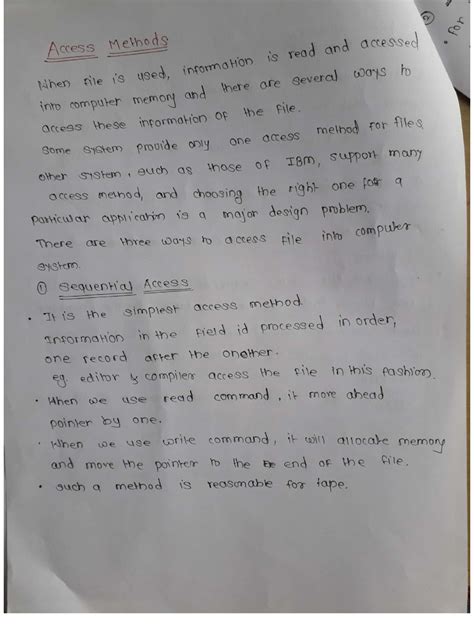 Access Methods
When file is used, information is read and accessed
into computer memory and there are several ways to
access these information of the file.
Some system provide only one access method for files,
other system, such as those of IBM, support many
access method, and choosing the right one for a
particular application is a major design problem.
There are three ways to access file into computer
system.
① Sequential Access
• It is the simplest access method.
Information in the field id processed in order,
one record after the onother.
eg. editor & compiler access the file in this fashion.
• When we use read command, it more ahead
pointer by one.
• When we use write command, it will allocate memory
and move the pointer to the end of the file.
• such a method is reasonable for tape.
②
• for